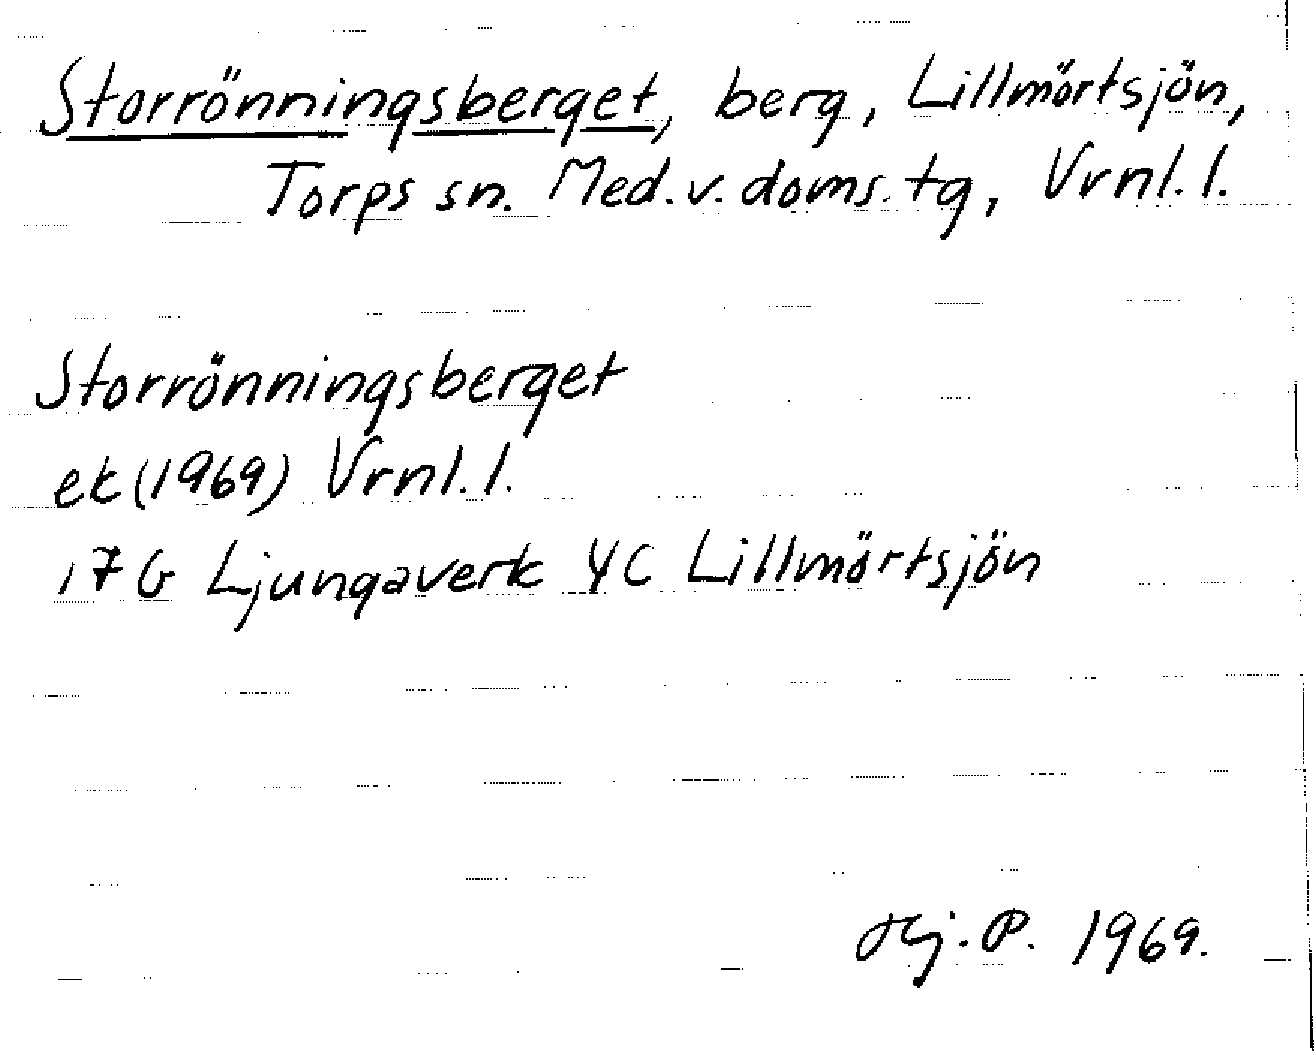 Storrönningsberget, berg, Lillmörtsjön,
Torps sn. Med. v. doms. tg, Vrnl. l.
Storrönningsberget
ek (1969) Vrnl. l.
17 G Ljungaverk 4C Lillmörtsjön
Hj. P. 1969.